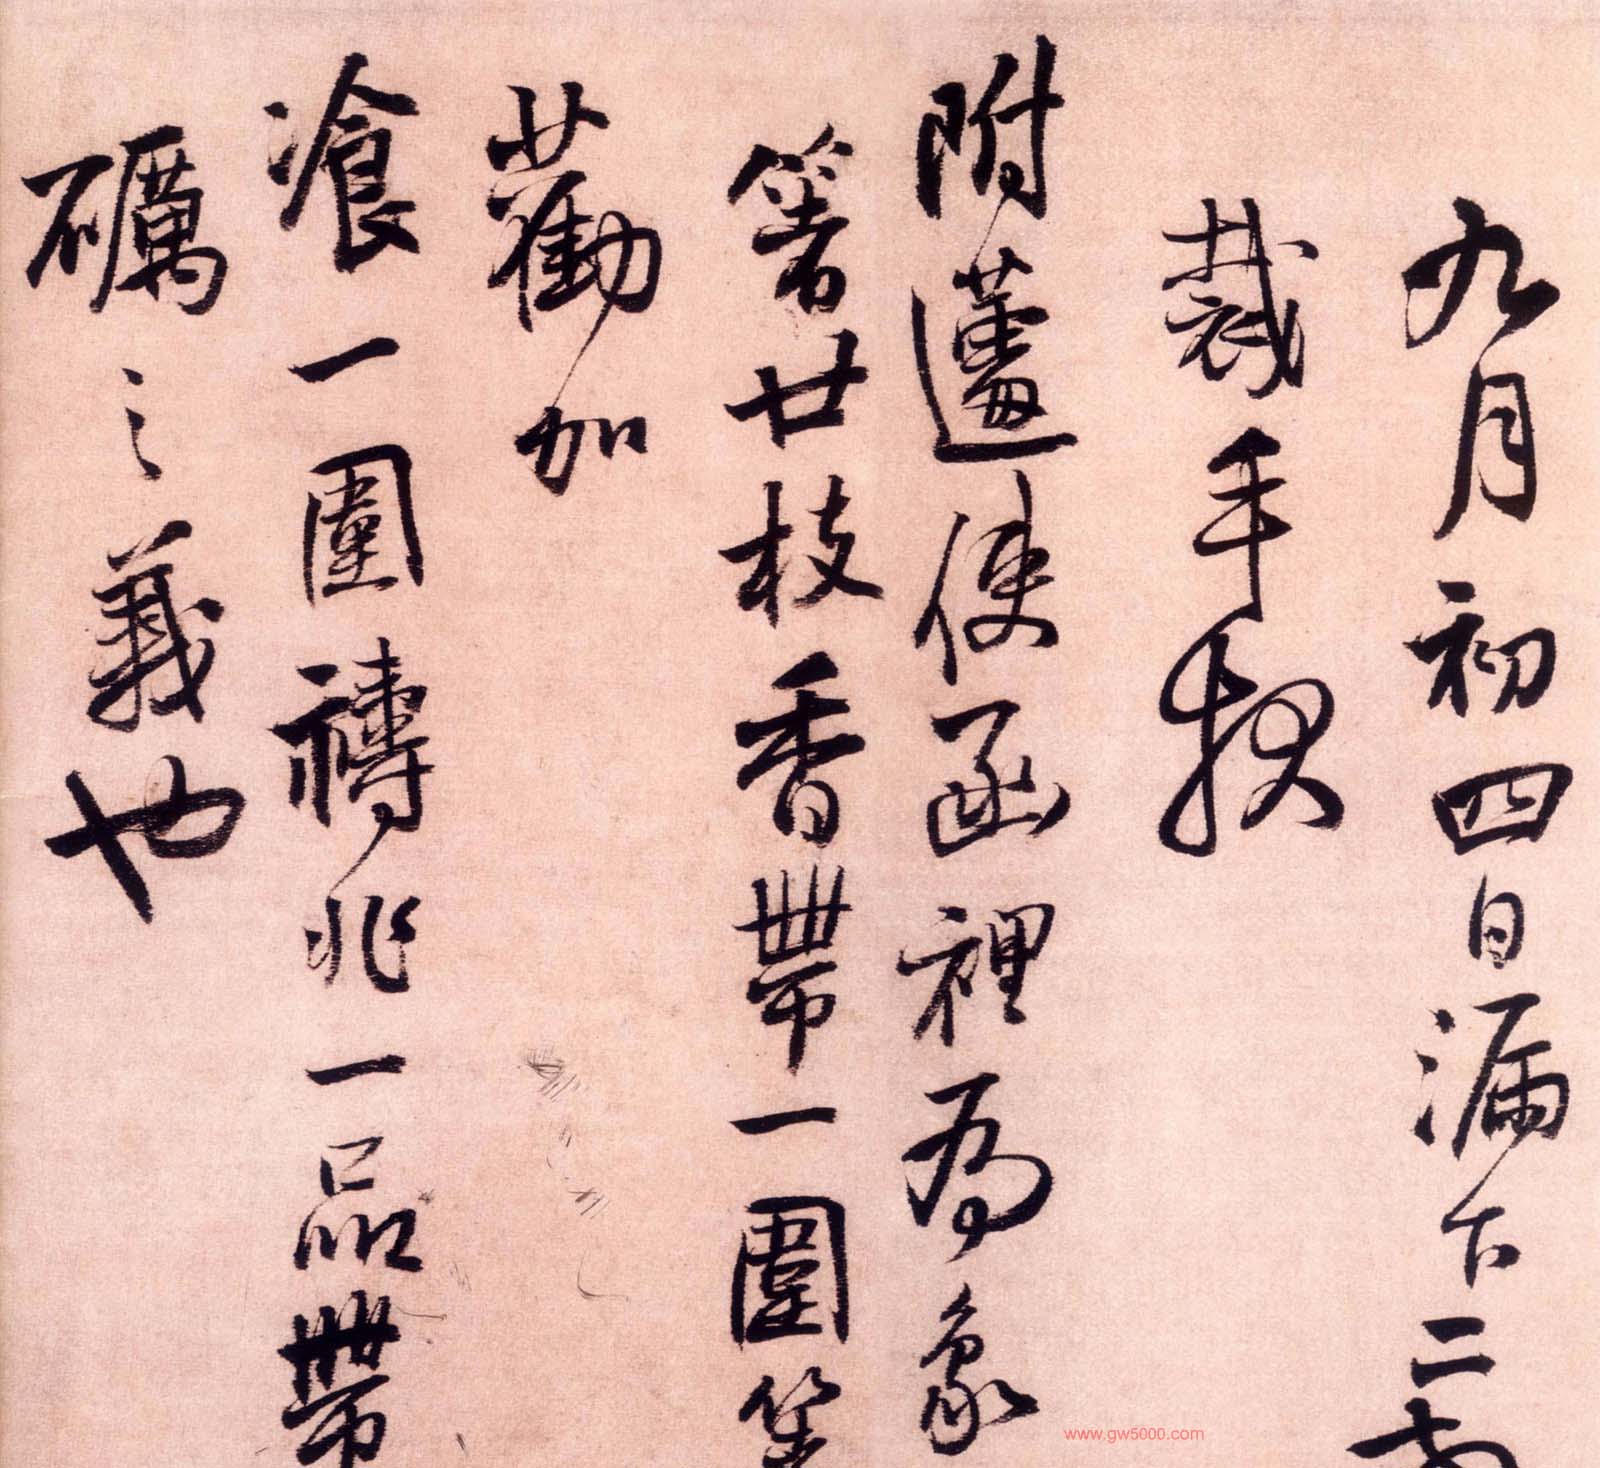 九月初四日漏下二
裁手
附使函裡為象
箸廿枝香帶一圍笙
勸加
飡一圍禱非一品帶
礪之義也
www.gw5000.com